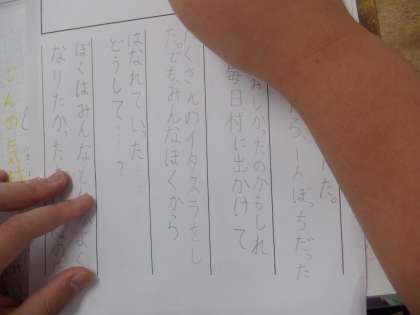 た。
ら、一人ぼっちだった
しかったのかもしれ
毎日村に出かけて
くさんのイタズラをし
た。でもみんなぼくから
はなれていった
どうして…?
ぼくはみんなと
よく
なりたかった
の
んの気持